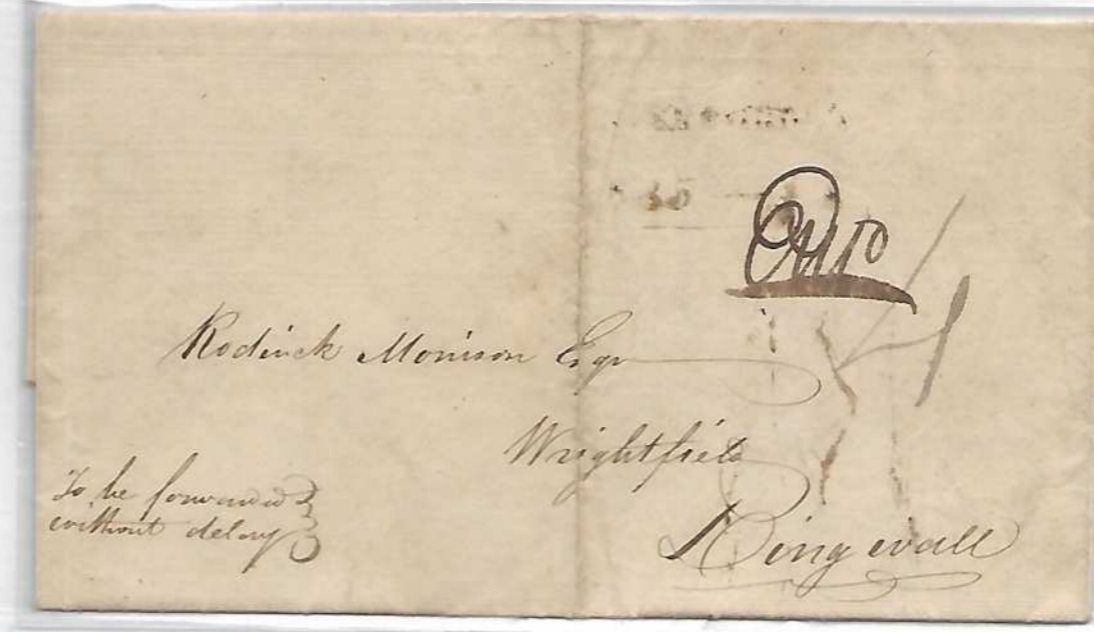 Roderick Morison Esqr
Wrightfield
Dingwall
To be forwarded
without delay